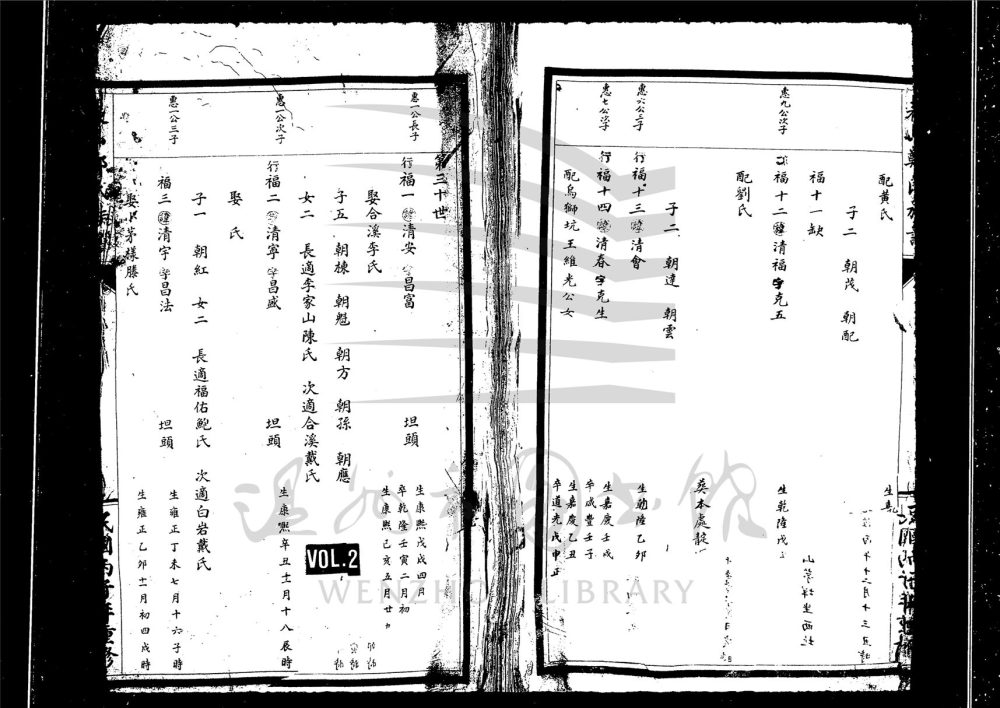 配黃氏
子二 朝茂 朝配
福十一缺
惠九公次子
福十二諱清福字克五
生乾隆戊
山管祥坐西北
配劉氏
葬本處
子二 朝達 朝雲
惠六公三子
行福十三諱清會
生乾隆乙卯
惠七公次子
行福十四諱清春字克生
生嘉慶壬戌
卒咸豐壬子
配烏獅坑王維光公女
生嘉慶乙丑
卒道光戊申正
第三十世
惠一公長子
行福一諱清安字昌富
坦頭
生康熙戊戌四月
卒乾隆壬寅二月初
娶合溪李氏
生康熙己亥五月廿
子五 朝棟 朝魁 朝方 朝孫 朝應
女二 長適李家山陳氏 次適合溪戴氏
惠一公次子
行福二諱清寧字昌盛
坦頭
生康熙辛丑十一月十八辰時
娶 氏
子一 朝紅 女二 長適福佑鮑氏 次適白岩戴氏
惠一公三子
福三諱清宇字昌法
坦頭
生雍正丁未七月十六子時
娶茅樣滕氏
生雍正乙卯十一月初四戌時
民國丙子年重修
VOL.2
溫州市圖書館
WENZHO LIBRARY